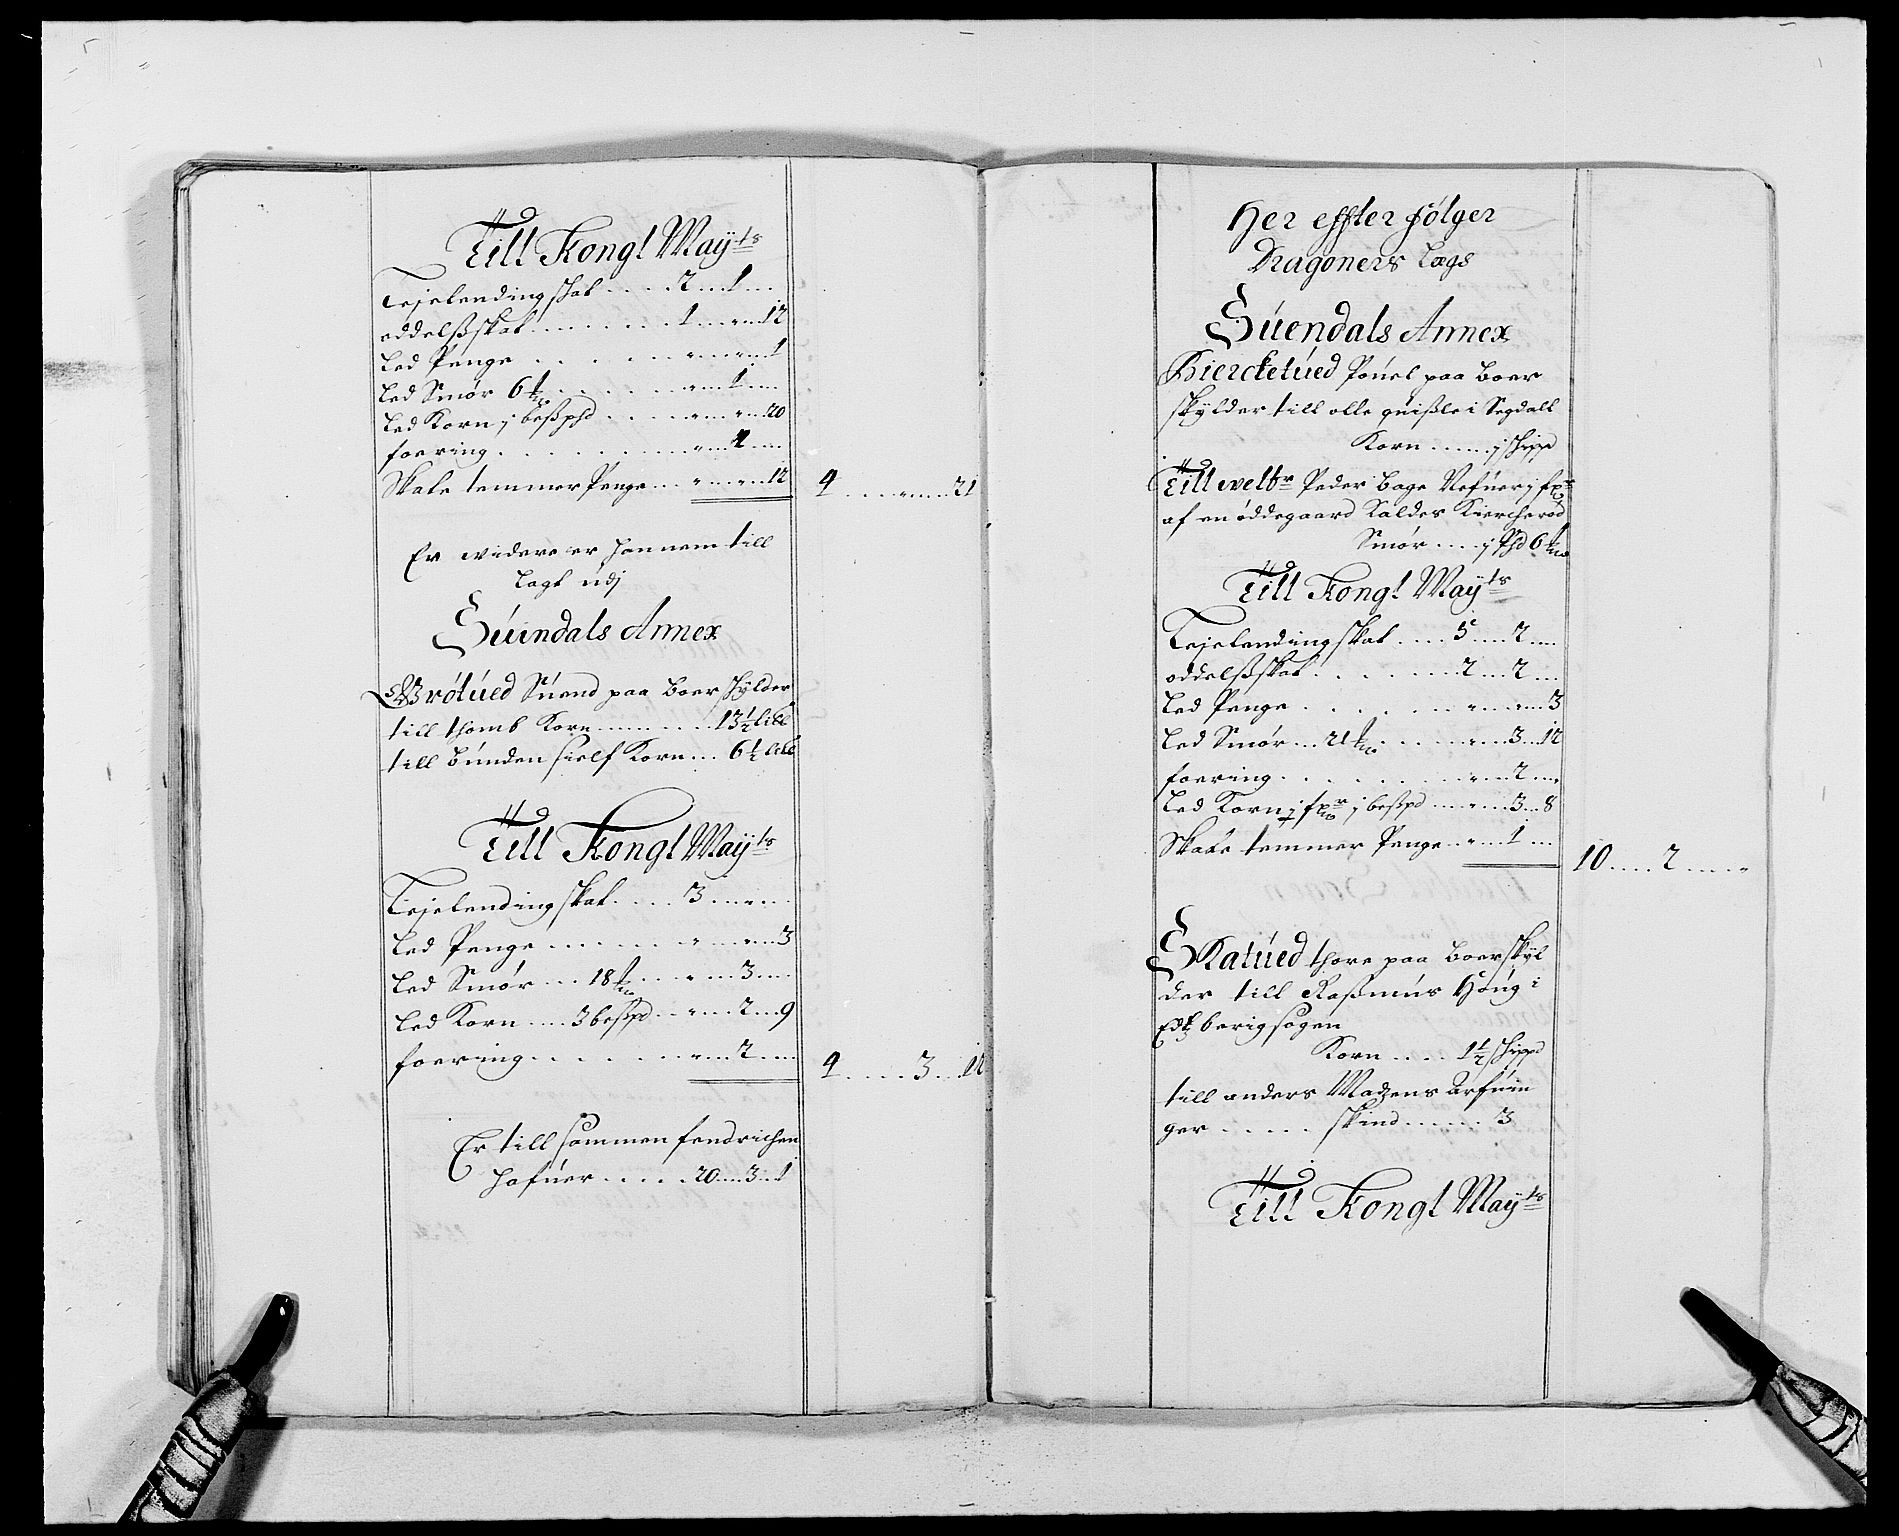 Till Kongl Mayts
Lejelending skat . . . . 2 . . . 1 . . .
oddelßskat . . . . . . . . 1 . . . " . . . 12
Led Penge . . . . . " . . . " . . . 1
Led Smør 6 . . . . . " . . . 1 . . .
Led Korn j beßpd . . . . " . . . " . . . 20
foering . . . . . . . . " . . . 2 . . .
Skate temmer Penge . . . " . . . " . . . 12 4 . . . . " . . . . 21
Er videre er hannem till
Lagt udj
Súindals Annex
Grótúed Súend paa Boer skylder
till thomb Korn . . . . . . 13½ litl
till Bunden sielf Korn . . . 6½ litl
Till Kongl Mayts
Lejelending skat . . . . 3 . . . " . . .
Led Penge . . . . . . " . . . " . . . 3
Led Smør . . . 18 . . . " . . . 3 . . .
Led Korn . . . . 3 beßpd . . " . . . 2 . . . 9
foering . . . . . . . " . . . 2 . . . 4 . . . . . 3 . . . 12
Er till sammen fendrichen
hafúer . . . . . 20 . . . 3 . . . 1
Her effter følger
Dragoners Lægs
Súendals Annex
Kierckelúed Poúel paa Boer
skylder till olle quißle i Segdall
Korn . . . . . j shippd
Till welbr Peder Bage Refúer j
af en øddegaard Kaldes Kiercherød
Smør . . . . j Pd 6
Till Kongl Mayts
Lejelending skat . . . . 5 . . . . 2 . . . .
oddelßskat . . . . . . . 2 . . . 2 . . .
Led Penge . . . . . . " . . . " . . . 3
Led Smør . . . 21 . . . . . " . . . 3 . . . 12
foering . . . . . . . . . " . . . 2 . . .
Led Korn j j beßpd . . . " . . . 3 . . . 8
Skate temmer Penge . . " . . . 1 . . . 10 . . . . . 2 . . . . . "
Skatúed thore paa Boer skyl
der till Raßmús Hóúg i
berig sogen
Korn . . . . 1½ shippd
till anders Madzens Arfúin
ger . . . . . skind . . . . . . 3
Till Kongl Mayts